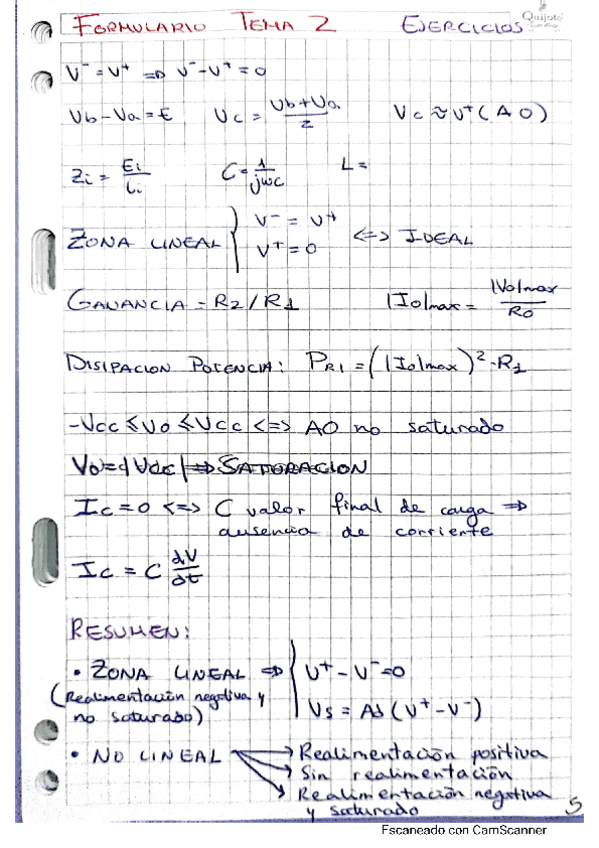 FORMULARIO TEMA 2 EJERCICIOS
Quijote
V⁻ = V⁺ ⇒ V⁻ - V⁺ = 0
Vb - Va = E Vc = (Vb + Va)/2 Vc ≈ V⁺ (AO)
Zi = Ei/Ii C = 1/jωC L =
ZONA LINEAL { V⁻ = V⁺
V⁺ = 0 <=> IDEAL
GANANCIA = R2 / R1 |Io|max = |Vo|max/Ro
DISIPACION POTENCIA: PR1 = (|Io|max)² · R1
-Vcc ≤ Vo ≤ Vcc <=> AO no saturado
Vo = |Vcc| ⇒ SATURACION
Ic = 0 <=> C valor final de carga ⇒
ausencia de corriente
Ic = C dV/dt
RESUMEN:
• ZONA LINEAL ⇒ { V⁺ - V⁻ = 0
(Realimentación negativa y
no saturado) Vs = Ad (V⁺ - V⁻)
• NO LINEAL → Realimentación positiva
→ Sin realimentación
→ Realimentación negativa
y saturado
5
Escaneado con CamScanner